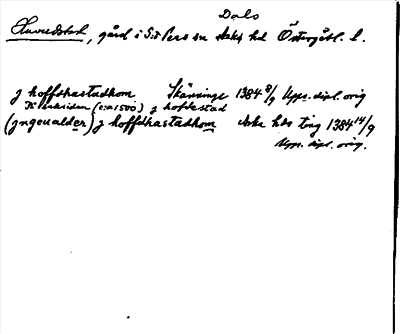 Dals
Huvudstad, gård i S:t Pers sn Aska hd Östergötl. l.
j hoffdhastadhom Skänninge 1384 8/9 Upps. dipl. orig
På baksidan (c:a 1500) j hofdestad
(jngeualder) j hoffdhastadhom Aska hds ting 1384 14/9
Upps. dipl. orig.